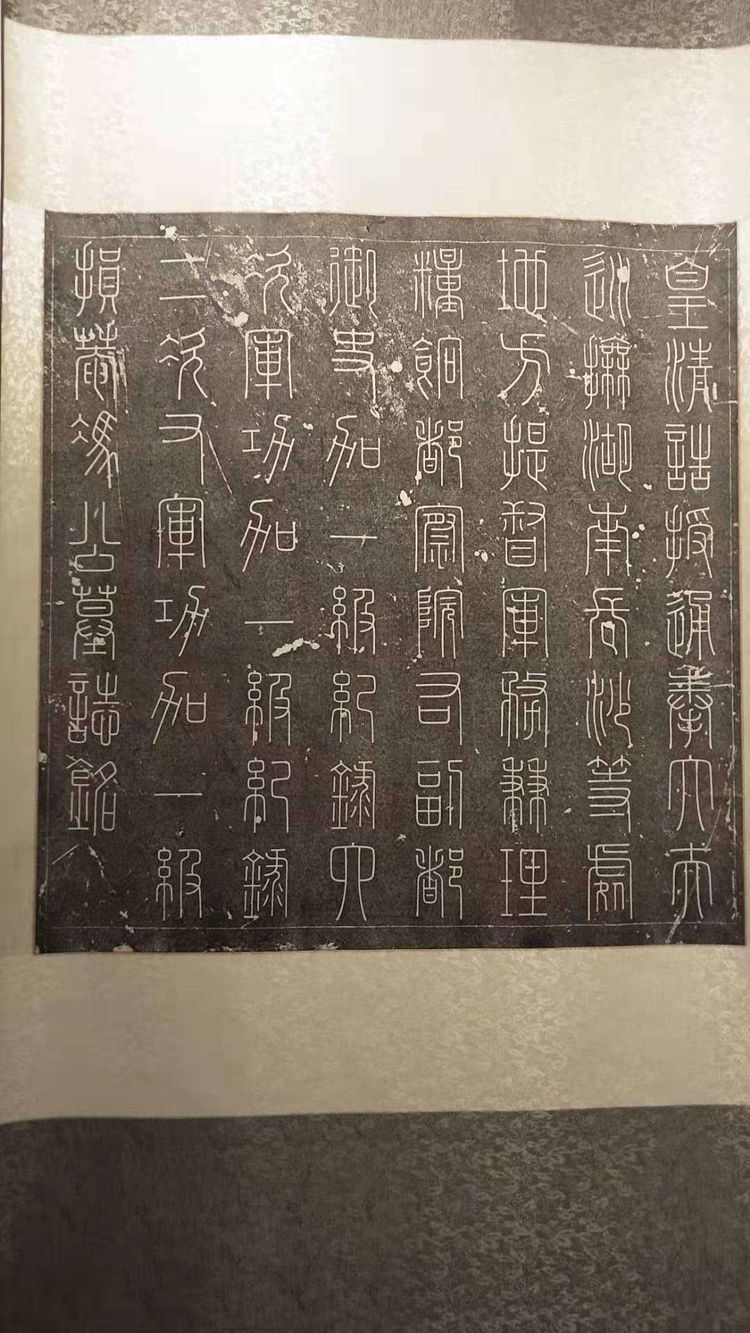 皇清誥授通奉大夫
巡撫湖南長沙等處
地方提督軍務兼理
糧餉都察院右副都
御史加一級紀錄六
次軍功加一級紀錄
二次又軍功加一級
損菴馮公墓誌銘